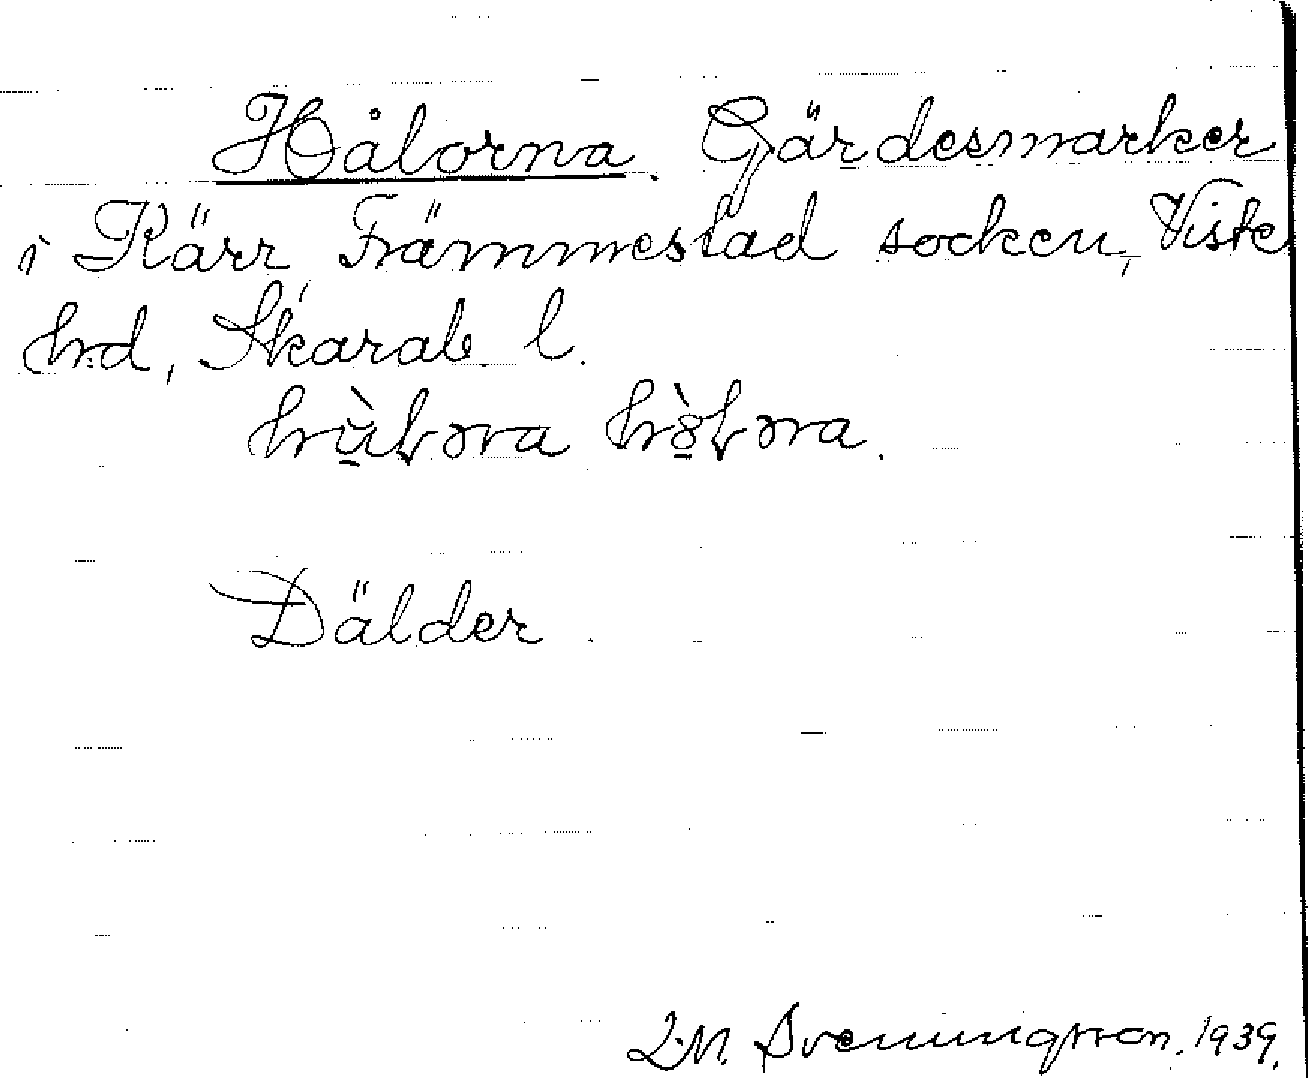 Hålorna. Gärdesmarker
i Kärr, Främmestad socken, Viste
hd, Skarab l.
Dälder.
Svenningsson. 1939.